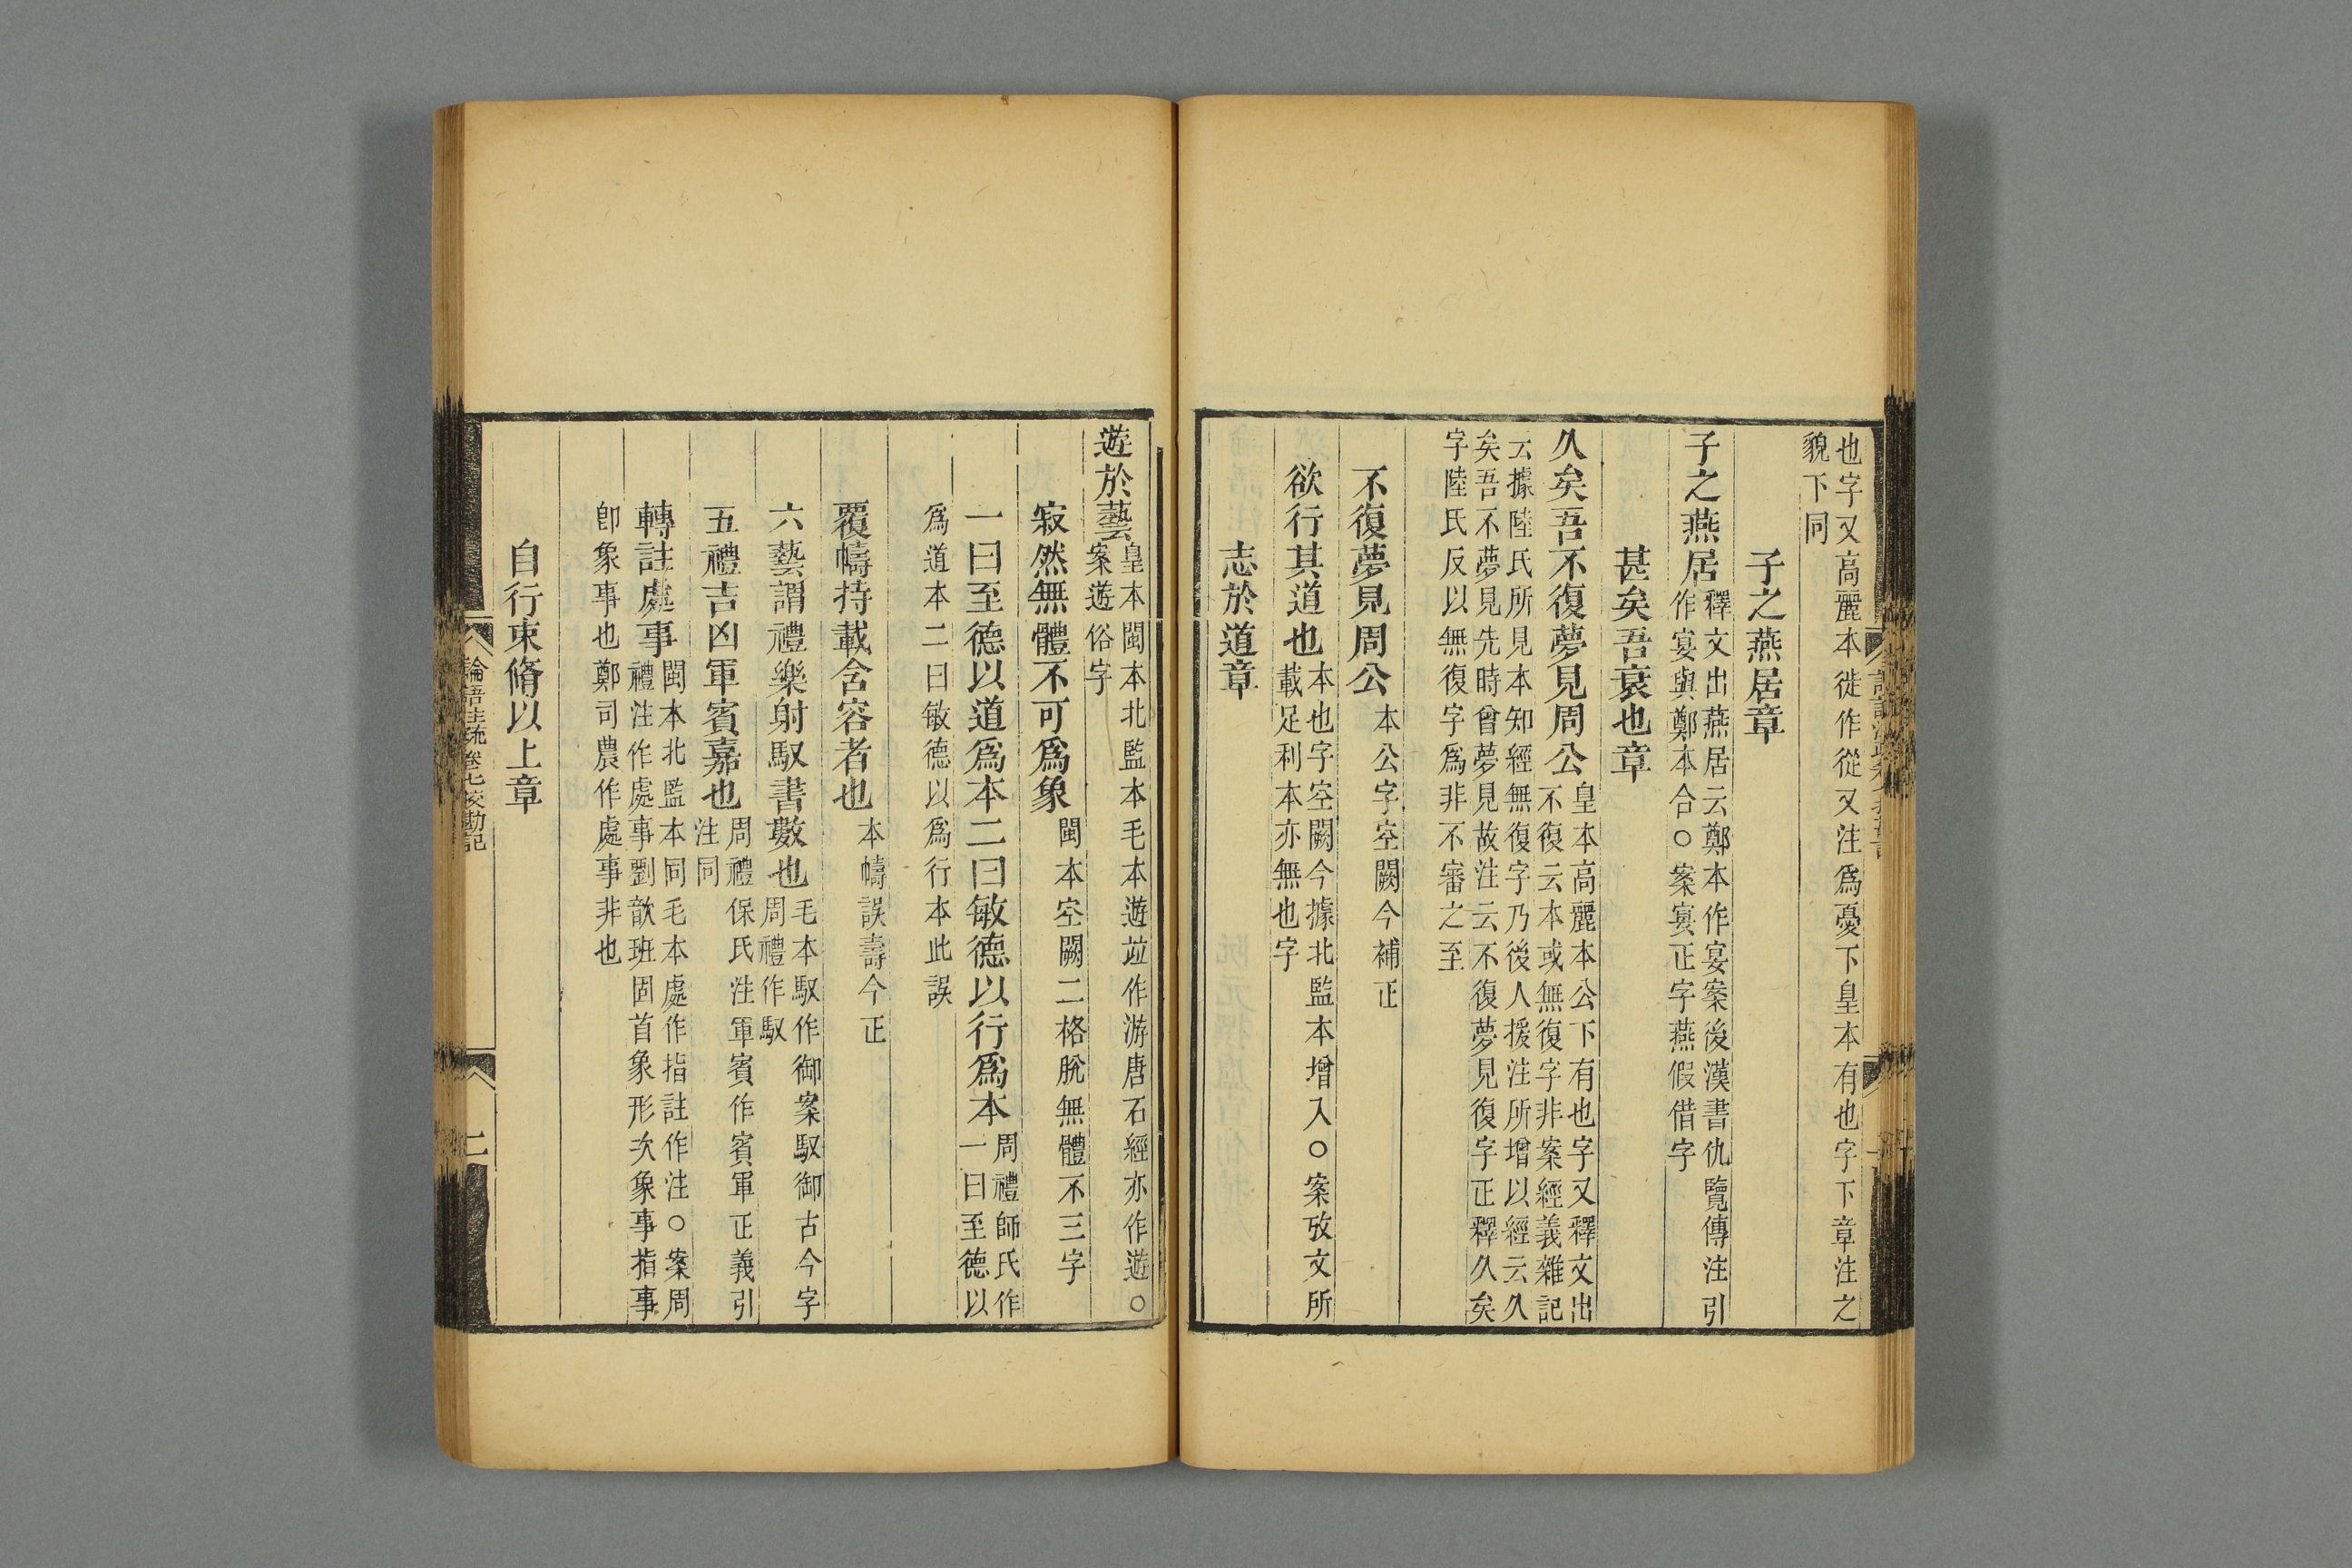 也字又高麗本徙作從又注爲憂下皇本有也字下章注之
貌下同
子之燕居章
子之燕居釋文出燕居云鄭本作宴案後漢書仇覽傳注引
作宴與鄭本合○案宴正字燕假借字
甚矣吾衰也章
久矣吾不復夢見周公皇本高麗本公下有也字又釋文出
不復云本或無復字非案經義雜記
云據陸氏所見本知經無復字乃後人援注所增以經云久
矣吾不夢見先時曾夢見故注云不復夢見復字正釋久矣
字陸氏反以無復字爲非不審之至
不復夢見周公本公字空闕今補正
欲行其道也本也字空闕今據北監本增入○案攷文所
載足利本亦無也字
志於道章
遊於藝皇本閩本北監本毛本遊竝作游唐石經亦作遊○
案遊俗字
寂然無體不可爲象閩本空闕二格脫無體不三字
一曰至德以道爲本二曰敏德以行爲本周禮師氏作
一曰至德以
爲道本二曰敏德以爲行本此誤
覆幬持載含容者也本幬誤壽今正
六藝謂禮樂射馭書數也毛本馭作御案馭御古今字
周禮作馭
五禮吉凶軍賓嘉也周禮保氏注軍賓作賓軍正義引
注同
轉註處事閩本北監本同毛本處作指註作注○案周
禮注作處事劉歆班固首象形次象事指事
卽象事也鄭司農作處事非也
自行束脩以上章
論語注疏卷七挍勘記
二